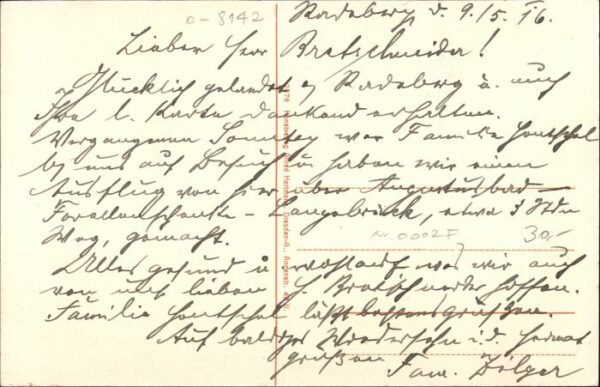 0-8142
Radeberg d. 9./5. 16.
Lieber Herr Bretschneider!
Glücklich gelandet i/ Radeberg u. auch
Ihre l. Karte dankend erhalten.
Vergangenen Sonntag war Familie Hentschel
bei uns auf Besuch u haben wir einen
Ausflug von hier über Augustusbad –
Forellenschenke – Langebrück, etwa 3 Stdn
Weg, gemacht.
Nr 0002F
30,-
Alles gesund u wohlauf was wir auch
von und lieben H. Bretschneider hoffen.
Familie Hentschel läßt bestens grüßen.
Auf baldiges Wiedersehn i. d. Heimat
grüßen Fam. Zölger
Dresden-A.,